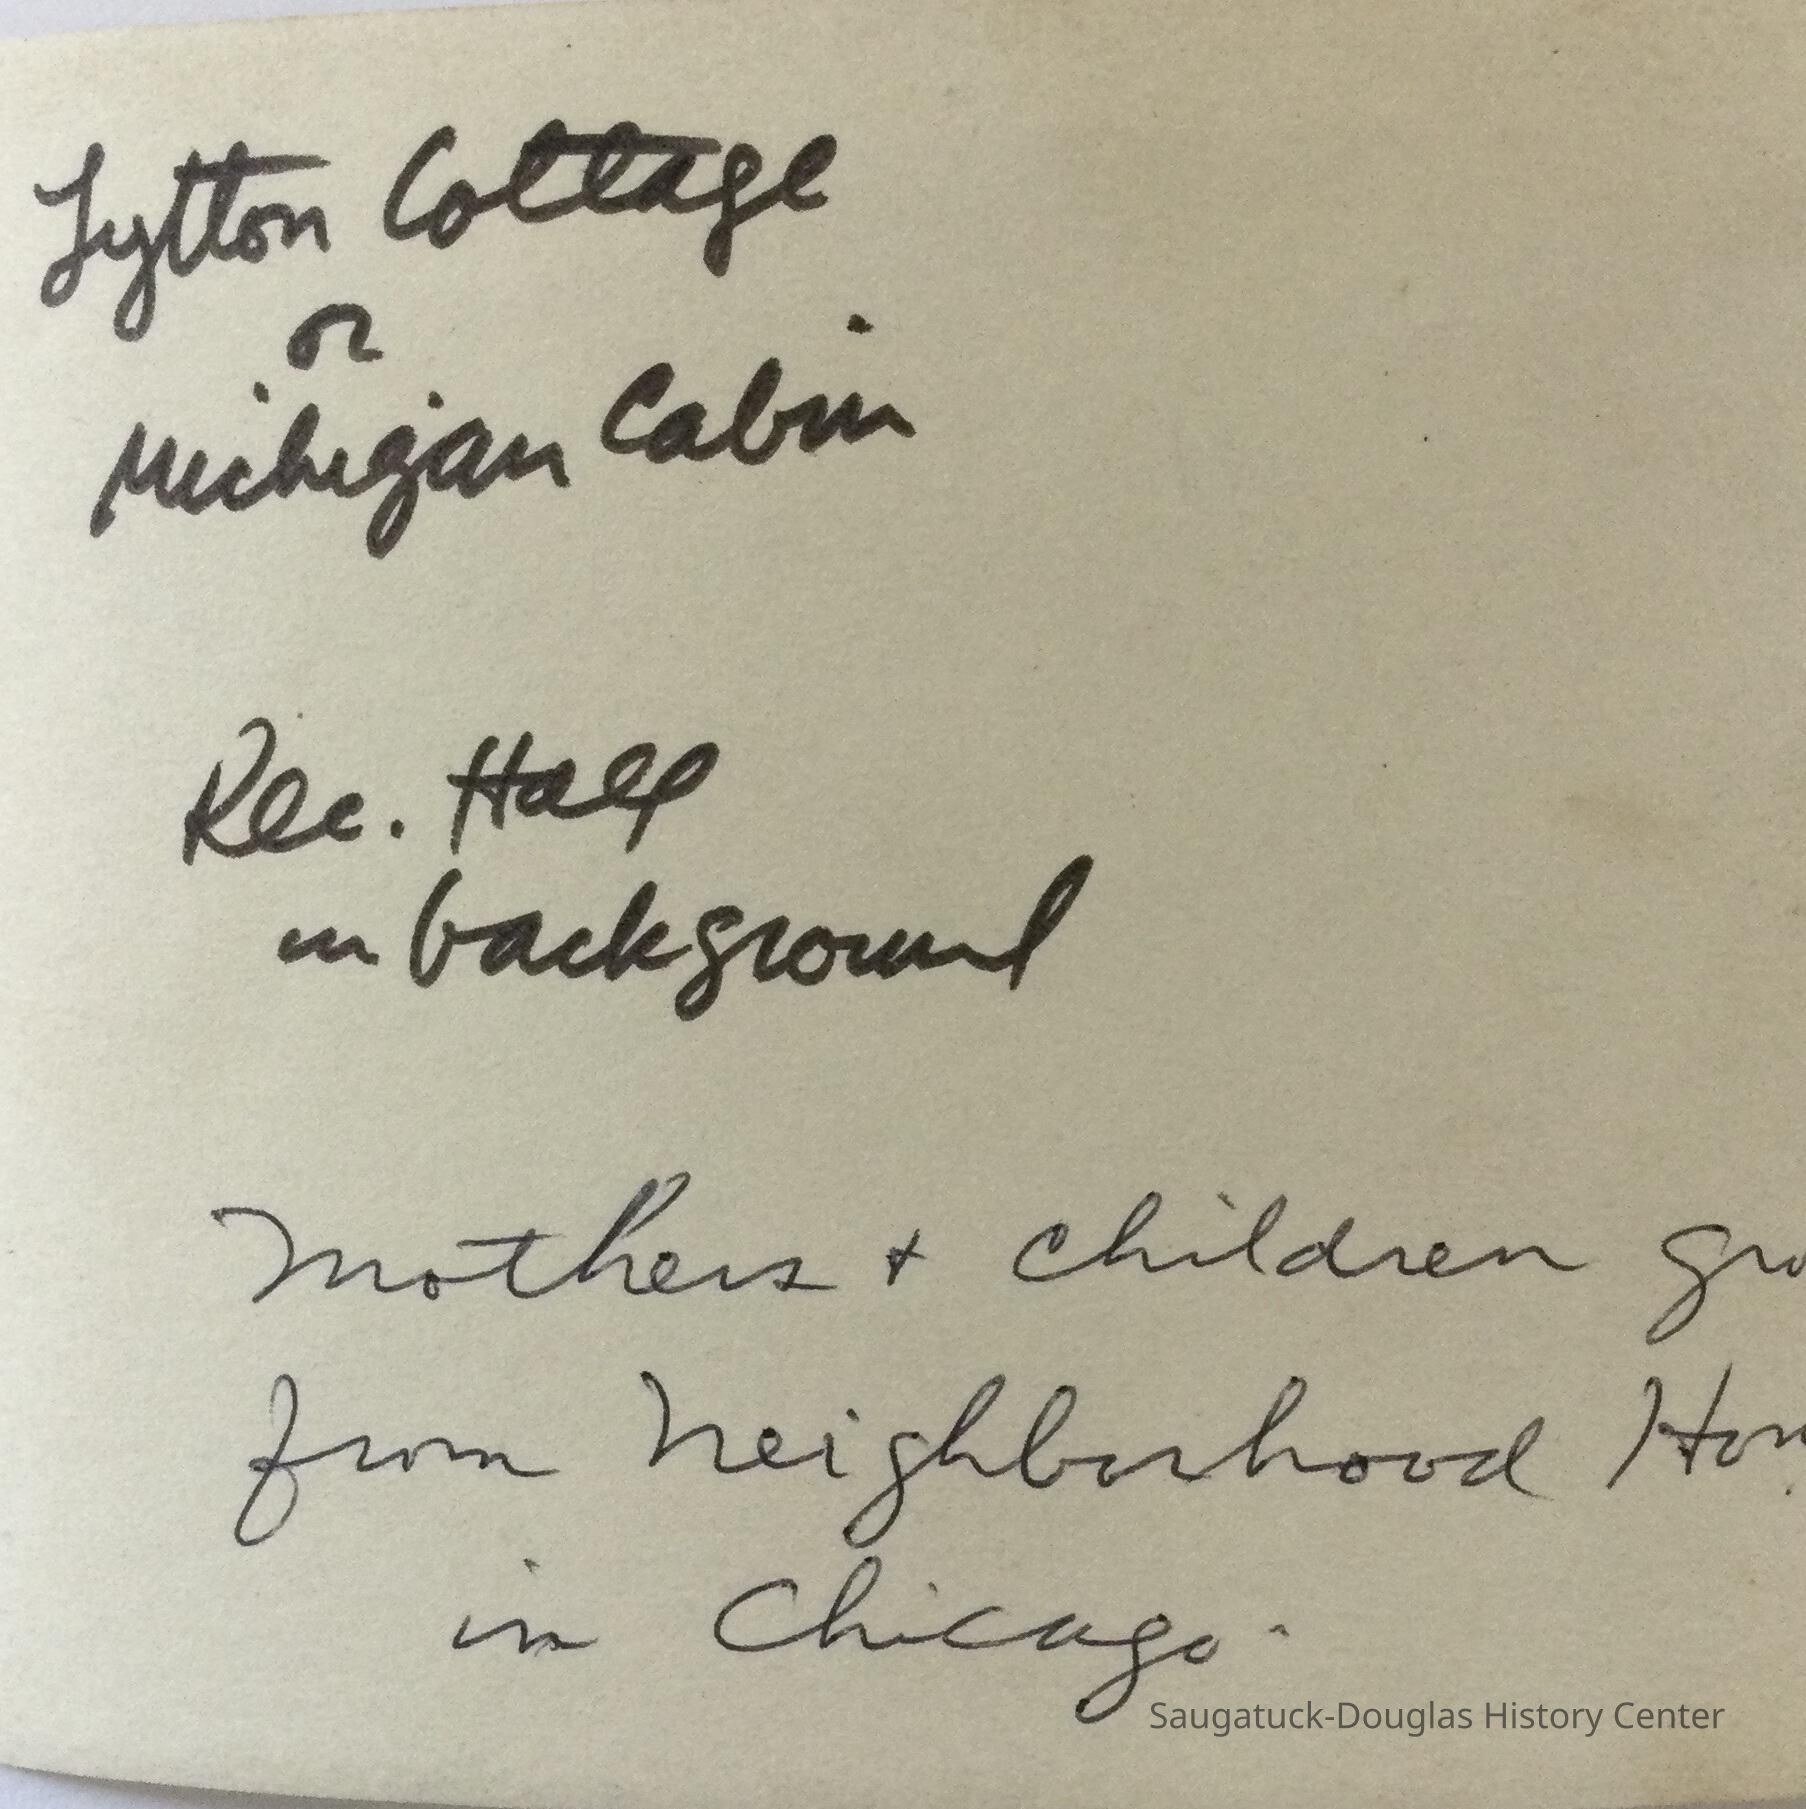 Lytton Cottage
or
Michigan Cabin
Rec. Hall
in background
Mothers + children gro
from Neighborhood Hou
in Chicago.
Saugatuck-Douglas History Center